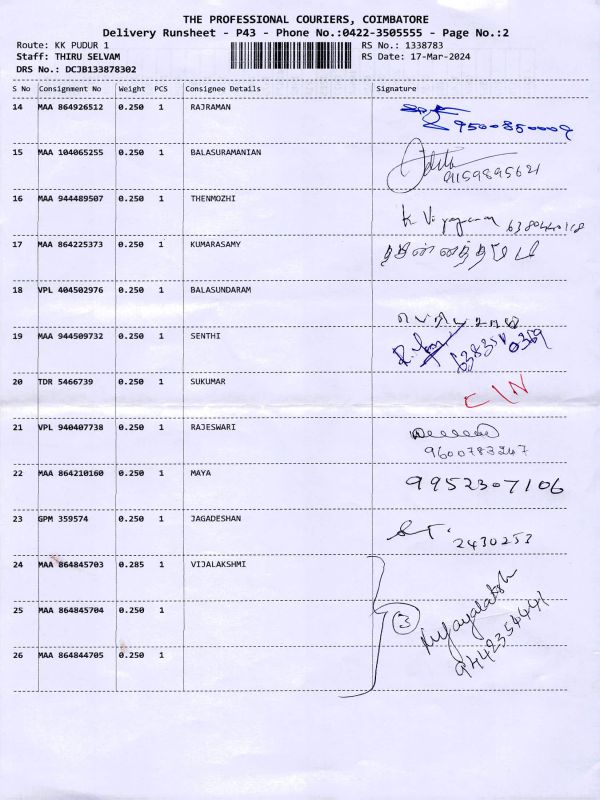 THE PROFESSIONAL COURIERS, COIMBATORE
Delivery Runsheet - P43 - Phone No.:0422-3505555 - Page No.:2
Route: KK PUDUR 1 RS No.: 1338783
Staff: THIRU SELVAM RS Date: 17-Mar-2024
DRS No.: DCJB133878302
S No Consignment No Weight PCS Consignee Details Signature
14 MAA 864926512 0.250 1 RAJRAMAN
9500850009
15 MAA 104065255 0.250 1 BALASURAMANIAN
9159895621
16 MAA 944489507 0.250 1 THENMOZHI
K Vijayan
17 MAA 864225373 0.250 1 KUMARASAMY
18 VPL 404502976 0.250 1 BALASUNDARAM
19 MAA 944509732 0.250 1 SENTHI
20 TDR 5466739 0.250 1 SUKUMAR
C/N
21 VPL 940407738 0.250 1 RAJESWARI
9600783247
22 MAA 864210160 0.250 1 MAYA
9952307106
23 GPM 359574 0.250 1 JAGADESHAN
2430253
24 MAA 864845703 0.285 1 VIJALAKSHMI
25 MAA 864845704 0.250 1
3 Vijayalaksh
9442354441
26 MAA 864844705 0.250 1